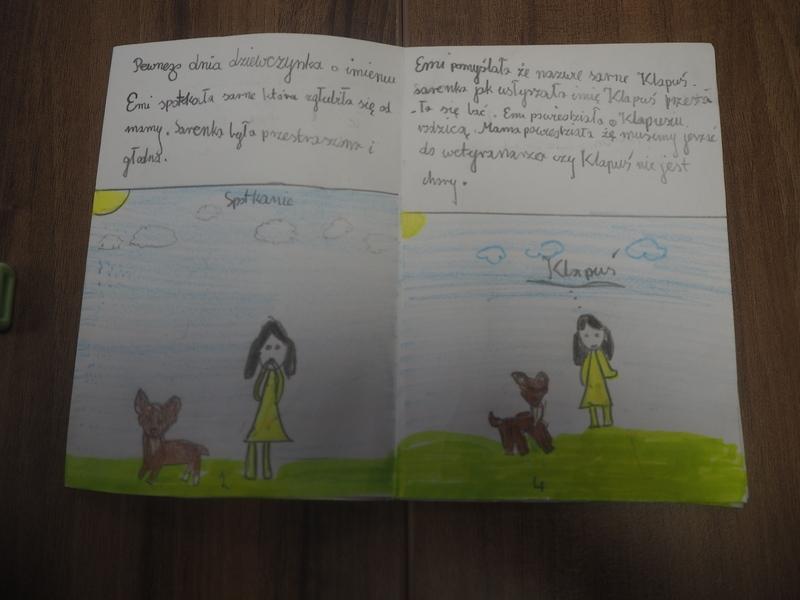 Pewnego dnia dziewczynka o imieniu
Emi spotkała sarne która zgłubiła się od
mamy. Sarenka była przestraszona i
głodna.
Spotkanie
2
Emi pomyślała że nazwie sarne Klapuś.
Sarenka jak usłyszała imię Klapuś przesta-
-ła się bać. Emi powiedziała o Klapusiu
rodzicą. Mama powiedziała że musimy jechać
do wetyranarza czy Klapuś nie jest
chory.
Klapuś
4